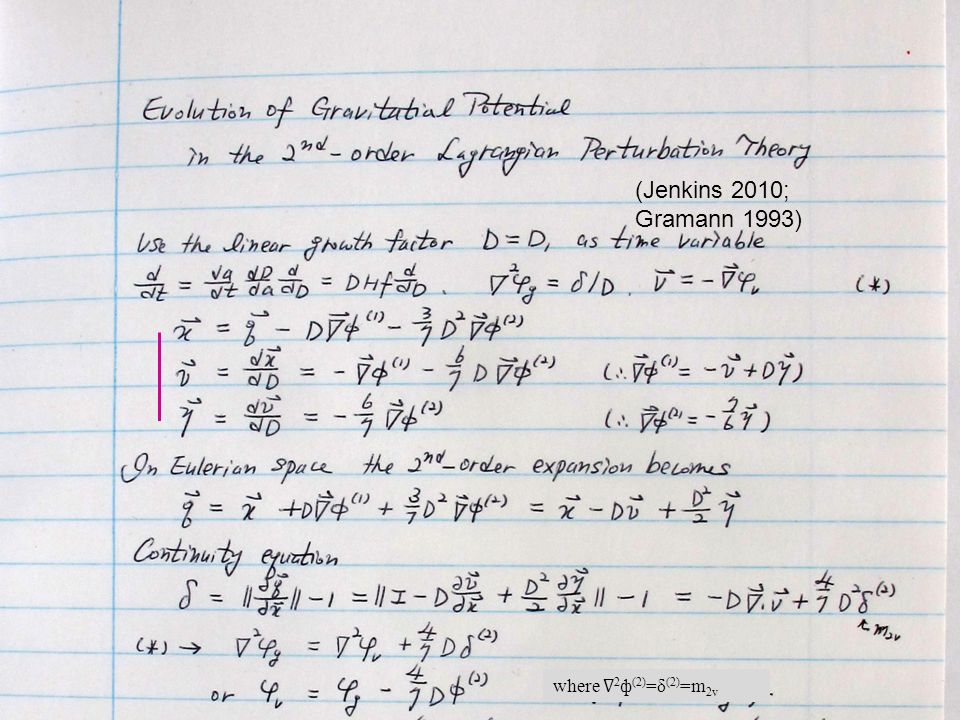 Evolution of Gravitatial Potential
in the 2nd-order Lagrangian Perturbation Theory
(Jenkins 2010;
Gramann 1993)
Use the linear growth factor D=D, as time variable
d/dt = da/dt dD/da d/dD = DHf d/dD . ∇²φ_g = δ/D . v⃗ = -∇⃗φ_v (*)
x⃗ = q⃗ - D∇⃗ϕ⁽¹⁾ - 3/7 D²∇⃗ϕ⁽²⁾
v⃗ = dx⃗/dD = -∇⃗ϕ⁽¹⁾ - 6/7 D∇⃗ϕ⁽²⁾ (∴∇⃗ϕ⁽¹⁾ = -v⃗ + Dη⃗)
η⃗ = dv⃗/dD = -6/7 ∇⃗ϕ⁽²⁾ (∴∇⃗ϕ⁽²⁾ = -7/6 η⃗)
In Eulerian space the 2nd-order expansion becomes
q⃗ = x⃗ + D∇⃗ϕ⁽¹⁾ + 3/7 D²∇⃗ϕ⁽²⁾ = x⃗ - Dv⃗ + D²/2 η⃗
Continuity equation
δ = ||∂q⃗/∂x⃗|| - 1 = ||I - D ∂v⃗/∂x⃗ + D²/2 ∂η⃗/∂x⃗|| - 1 = -D∇⃗·v⃗ + 4/7 D²δ⁽²⁾
↖ m_2v
(*) → ∇²φ_g = ∇²φ_v + 4/7 Dδ⁽²⁾
or φ_v = φ_g - 4/7 Dϕ⁽²⁾ where ∇²ϕ⁽²⁾=δ⁽²⁾=m_2v